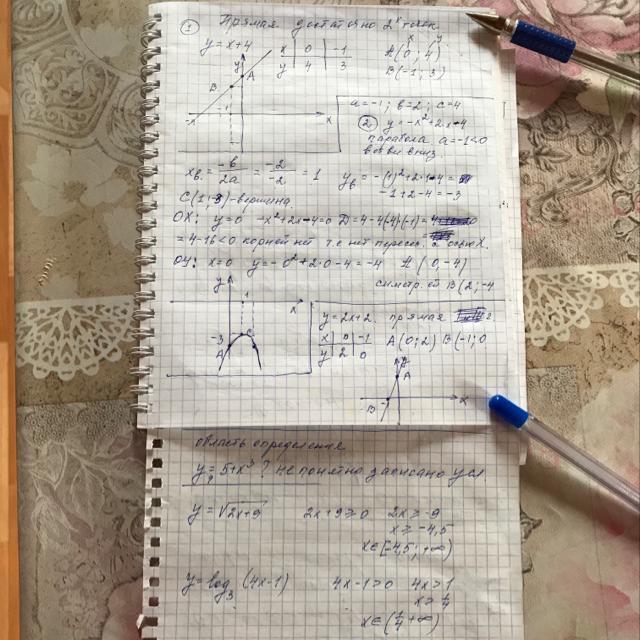 ① Прямая достаточно 2х точек
y = x+4
x | 0 | -1
y | 4 | 3
x y
A(0; 4)
B(-1; 3)
y
A
B
x
a=-1; b=2; c=4
② y=-x²+2x-4
парабола a=-1<0
ветви вниз
xв = -b/2a = -2/-2 = 1 yв = -(1)²+2·1-4=
-1+2-4=-3
C(1;-3)-вершина
OX: y=0 -x²+2x-4=0 D=4-4(-4)(-1)=
=4-16<0 корней нет т.е нет пересеч. с осью X.
OY: x=0 y=-0²+2·0-4=-4 A(0;-4)
симметр. ей B(2;-4
y
1
x
-3
C
A
y=2x+2 прямая
x | 0 | -1
y | 2 | 0
A(0;2) B(-1;0
A
B
x
область определения
y=5+x³ ? не понятно записано усл
y=√2x+9 2x+9≥0 2x≥-9
x≥-4,5
x∈[-4,5; +∞)
y=log₃(4x-1) 4x-1>0 4x>1
x>1/4
x∈(1/4; +∞)